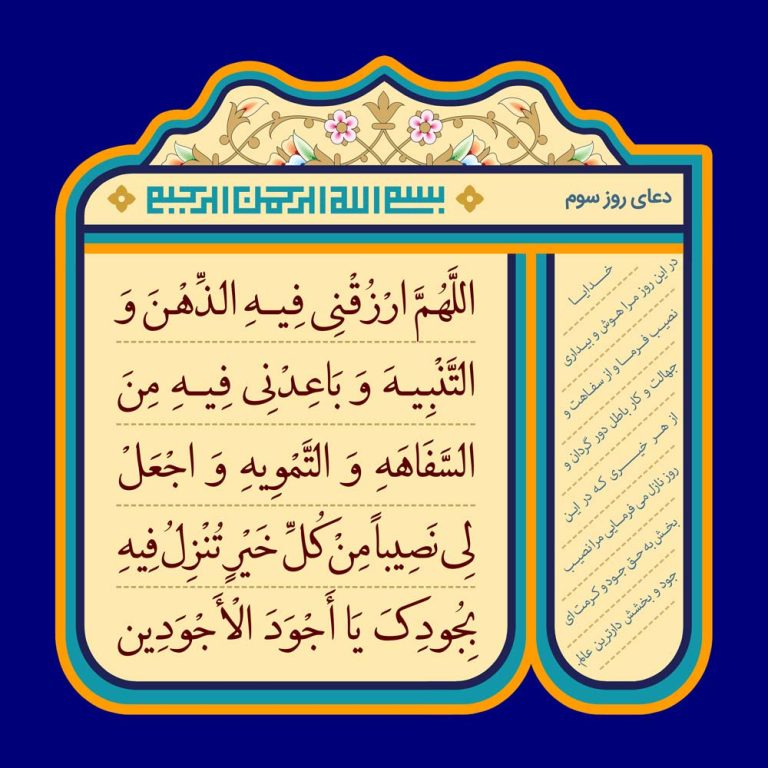 دعای روز سوم
بسم الله الرحمن الرحیم
اللَّهُمَّ ارْزُقْنِی فِیهِ الذِّهْنَ وَ
التَّنْبِیهَ وَ بَاعِدْنِی فِیهِ مِنَ
السَّفَاهَهِ وَ التَّمْوِیهِ وَ اجْعَلْ
لِی نَصِیباً مِنْ کُلِّ خَیْرٍ تُنْزِلُ فِیهِ
بِجُودِکَ یَا أَجْوَدَ الْأَجْوَدِین
خدایا
در این روز مرا هوش و بیداری
نصیب فرما و از سفاهت و
جهالت و کار باطل دور گردان و
از هر خیری که در این
روز نازل می فرمایی مرا نصیب
بخش به حق جود و کرمت ای
جود و بخشش دارترین عالم.